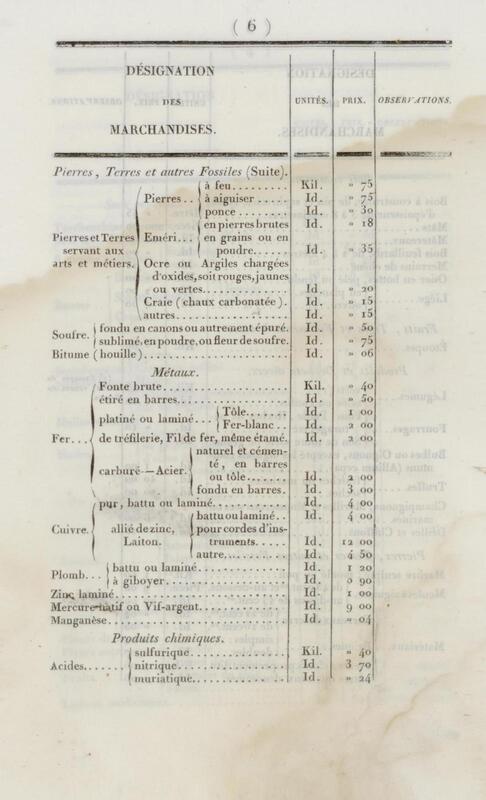 ( 6 )
DÉSIGNATION
DES
MARCHANDISES.
UNITÉS.
PRIX.
OBSERVATIONS.
Pierres, Terres et autres Fossiles (Suite).
Pierres et Terres servant aux arts et métiers.
Pierres.. à feu......... Kil. » 75
à aiguiser ..... Id. » 75
ponce ......... Id. » 30
Eméri... en pierres brutes Id. » 18
en grains ou en
poudre...... Id. » 35
Ocre ou Argiles chargées
d'oxides, soit rouges, jaunes
ou vertes........... Id. » 20
Craie (chaux carbonatée). Id. » 15
autres.............. Id. » 15
Soufre. fondu en canons ou autrement épuré. Id. » 50
sublimé, en poudre, ou fleur de soufre. Id. » 75
Bitume (houille)............... Id. » 06
Métaux.
Fer... Fonte brute............... Kil. » 40
étiré en barres............. Id. » 50
platiné ou laminé... Tôle....... Id. 1 00
Fer-blanc.. Id. 2 00
de tréfilerie, Fil de fer, même étamé. Id. 2 00
carburé—Acier. naturel et cémen-
té, en barres
ou tôle....... Id. 2 00
fondu en barres. Id. 3 00
Cuivre. pur, battu ou laminé......... Id. 4 00
allié de zinc, Laiton. battu ou laminé.. Id. 4 00
pour cordes d'ins-
truments.... Id. 12 00
autre......... Id. 4 50
Plomb... battu ou laminé............ Id. 1 20
à giboyer................ Id. 0 90
Zinc laminé.................. Id. 1 00
Mercure natif ou Vif-argent........ Id. 9 00
Manganèse................... Id. » 04
Produits chimiques.
Acides....... sulfurique............ Kil. » 40
nitrique.............. Id. 3 70
muriatique............ Id. » 24